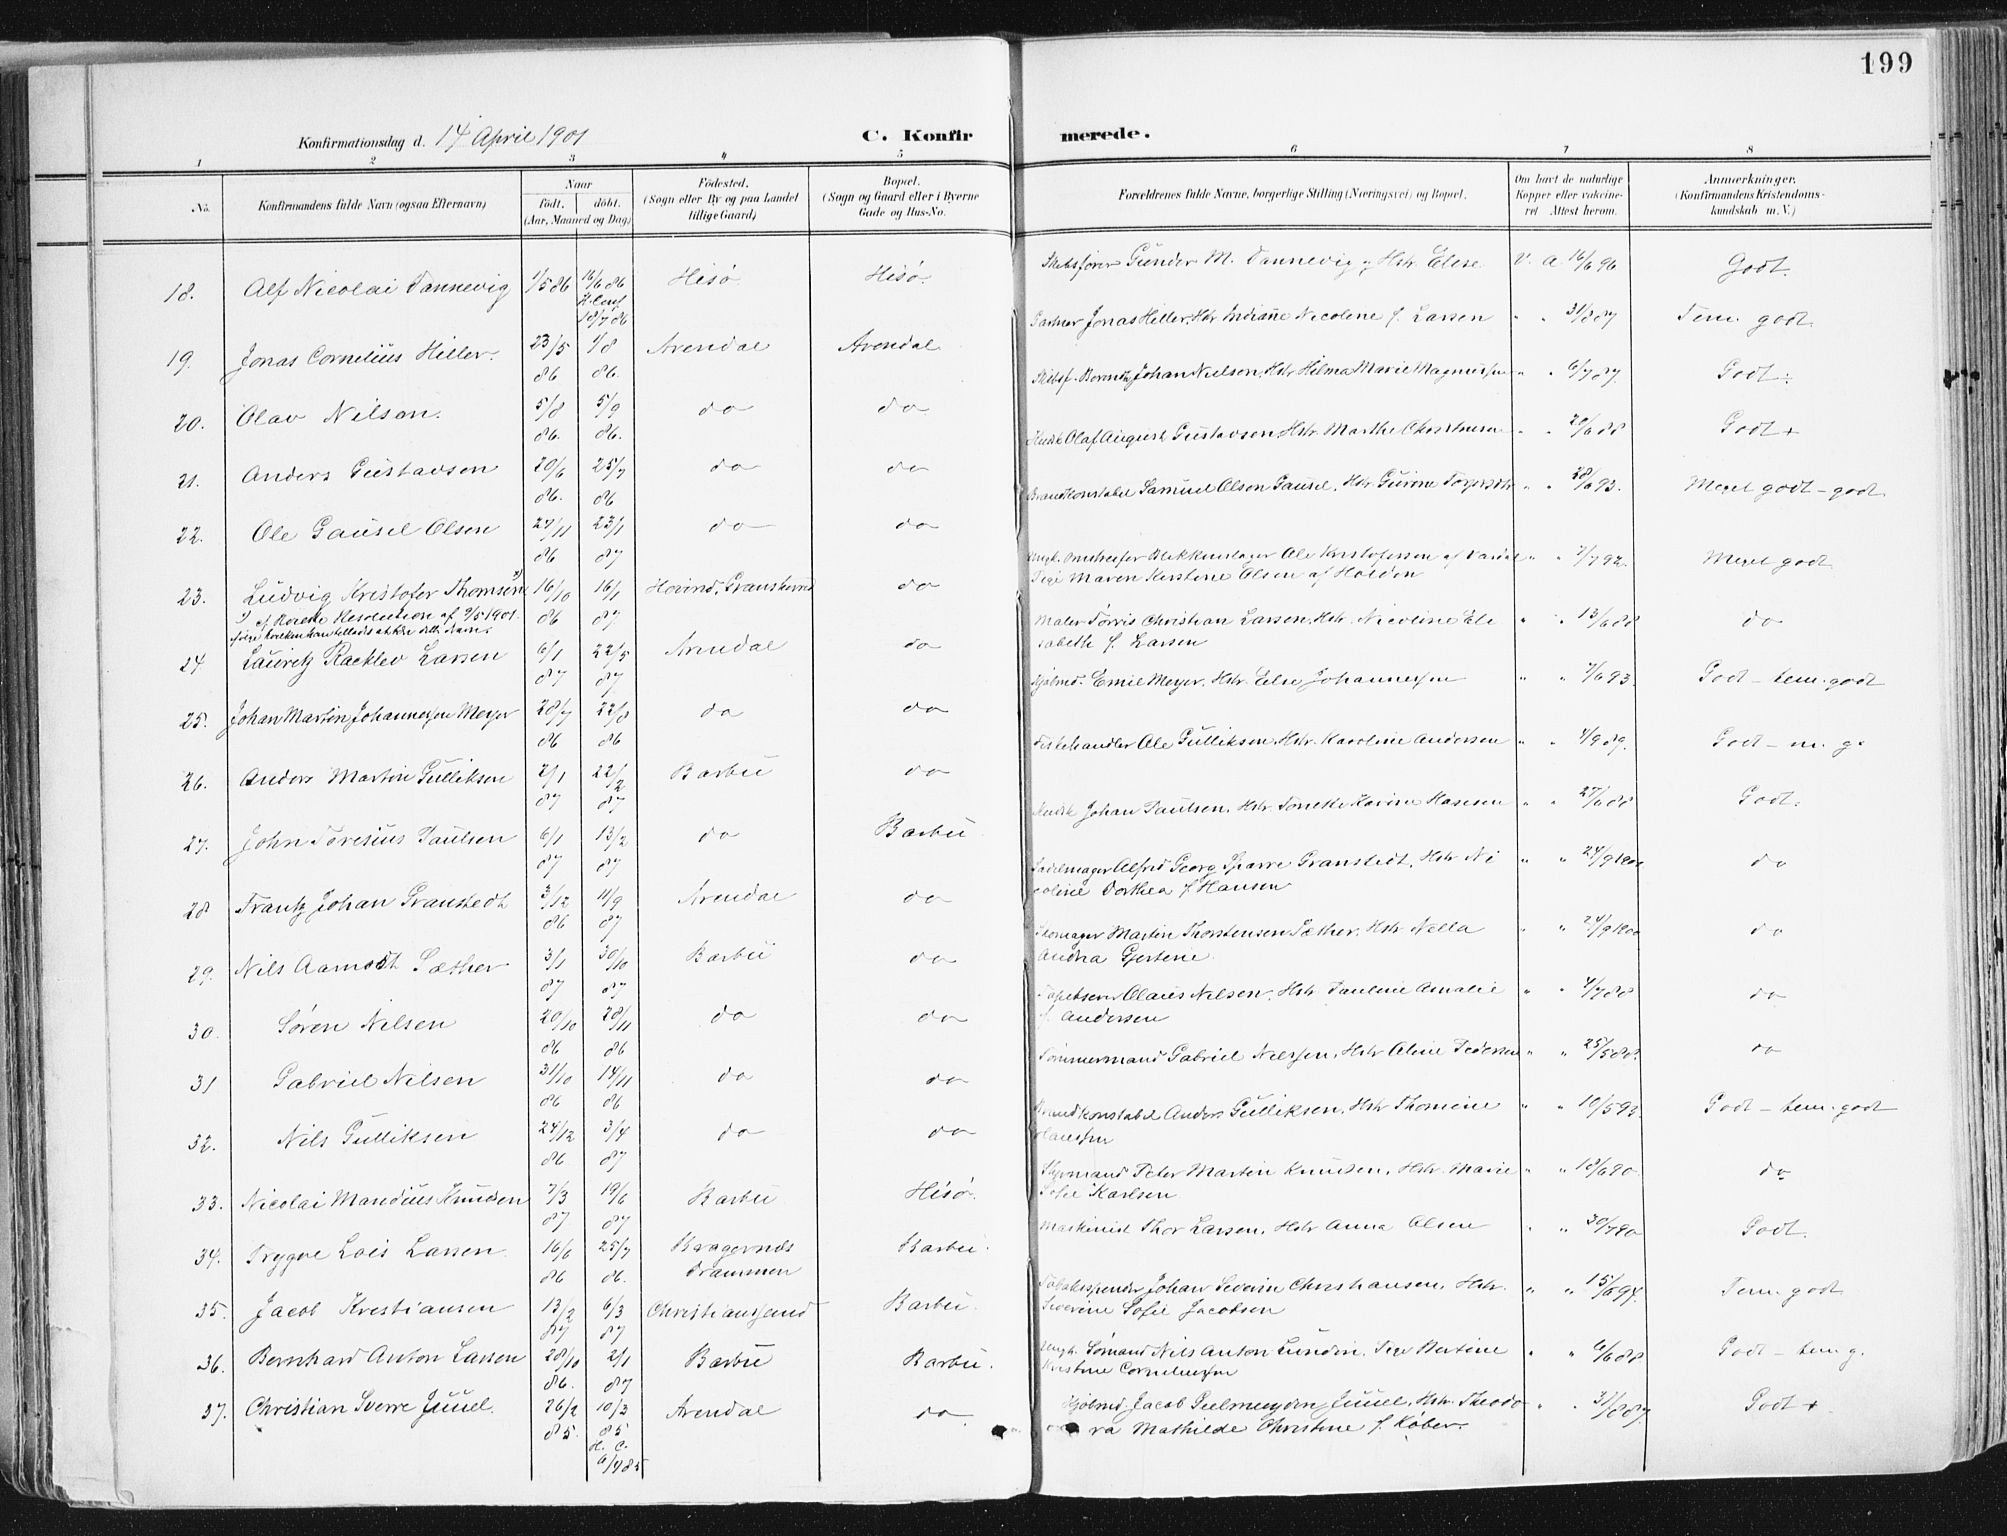 199
Konfirmationsdag d. 14 April 1901
C. Konfirmerede.
1 2 3 4 5 6 7 8
No.
Konfirmandens fulde Navn (ogsaa Efternavn)
Naar
født. døbt.
(Aar, Maaned og Dag)
Fødested.
(Sogn eller By og paa Landet
tillige Gaard)
Bopæl.
(Sogn og Gaard eller i Byerne
Gade og Hus-No.
Forældrenes fulde Navne, borgerlige Stilling (Næringsvei) og Bopæl.
Om havt de naturlige
Kopper eller vakcine-
ret Attest herom.
Anmærkninger.
(Konfirmandens Kristendoms-
kundskab m. V.)
18. Alf Nicolai Dannevig 1/5 86 16/6 86 Hisø Hisø Skibsfører Gunder M. Dannevig, Hstr Elise V. a. 16/6 96 Godt.
18/7 86
19. Jonas Cornelius Hiller. 23/5 86 1/8 86. Arendal Arendal Jonas Hiller, Hstr Indiane Nicoline f. Larsen " " 31/8 87 Tem. godt.
20. Olav Nilsen. 5/8 86. 5/9 86. do do Johan Nielsen, Hstr Hilma Marie Magnussen " " 6/7 87 Godt ÷
21. Anders Gustavson 20/6 86. 25/7 86 do do Kudsk Olaf August Gustavson Hstr. Marthe Christensen " " 20/6 88 Godt +
22. Ole Gausel Olsen 27/11 86 23/1 87 do do Brandkonstabel Samuel Olsen Gausel, Hstr. Gurine " " 28/6 93. Meget godt – godt.
23. Ludvig Kristofer Thomsen x) 16/10 86 16/1 87 Hovind, Granskerud do Blikkenslager Ole Kristofersen af Vardal " " 7/7 92. Meget godt
Pige Maren Kirstine Olsen af Holden
24. Lauritz Racklev Larsen 6/1 87 22/5 87 Arendal do Maler Tørris Christian Larsen, Hstr. Nicoline Eli " " 13/6 88 do
sabeth f. Larsen
25. Johan Martin Johannessen Meyer 28/7 86 22/8 86 do do Sjømd. Emil Meyer, Hstr. Else Johannessen " " 7/6 93. Godt – tem. godt
26. Anders Martin Gulliksen 2/1 87 22/2 87 Barbu do Fiskehandler Ole Gulliksen, Hstr. Karoline Andersen " " 4/9 89. Godt – m. g.
27. John Toresius Paulsen 6/1 87 13/2 87 do Barbu Kudsk Johan Paulsen, Hstr. Tomette Karine Hansen " " 27/6 88 Godt.
28 Frantz Johan Granstedt 3/12 86 11/9 87 Arendal do Sadelmager Alfred Georg Sparre Granstedt, Hstr Ni " " 24/9 1900 do
coline Dorthea f Hansen
29. Nils Aamodt Sæther 3/1 87 30/10 87 Barbu do Skomager Martin Thorstensen Sæther, Hstr Nella " " 24/9 1900 do
Andrea Gjertine
30. Søren Nilsen 20/10 86 28/11 86 do do Olaus Nilsen, Hstr Pauline Amalie " " 4/7 88 do
f. Andersen
31 Gabriel Nilsen 31/10 86 14/11 86 do do Tømmermand Gabriel Nilssen, Hstr Oline Pedersen " " 25/5 88. do
32. Nils Gulliksen 24/12 86 3/4 87 do do Brandkonstabel Anders Gulliksen, Hstr Thomine " " 10/5 93. Godt – tem. godt
Olaussen
33. Nicolai Mandius Knudsen 7/3 87 19/6 87 Barbu Hisø Styrmand Peter Martin Knudsen, Hstr. Marie " " 18/6 90. do
Sofie Karlsen
34. Trygve Lois Larsen 16/6 86 25/7 86. Bragernæs Barbu. Maskinist Thor Larsen, Hstr Anna Olsen " " 30/7 90 Godt.
Drammen
35. Jacob Kristiansen 13/2 87 6/3 87 Christianssand Barbu. Tobaksspinder Johan Severin Christiansen, Hstr. " " 15/6 94. Tem. godt
Severine Sofie Jacobsen
36. Bernhard Anton Larsen 28/10 86. 2/1 87 Barbu Barbu. Ungk. Sømand Nils Anton Lunden, Pige Martine " " 6/6 88 Godt – tem g.
Kristine Corneliussen
37. Christian Sverre Juuel 26/2 85. 10/3 85 Arendal do Sjømd. Jacob Juuel, Hstr Theodo " " 31/8 87. Godt +
ra Mathilde Christine f. Købër.